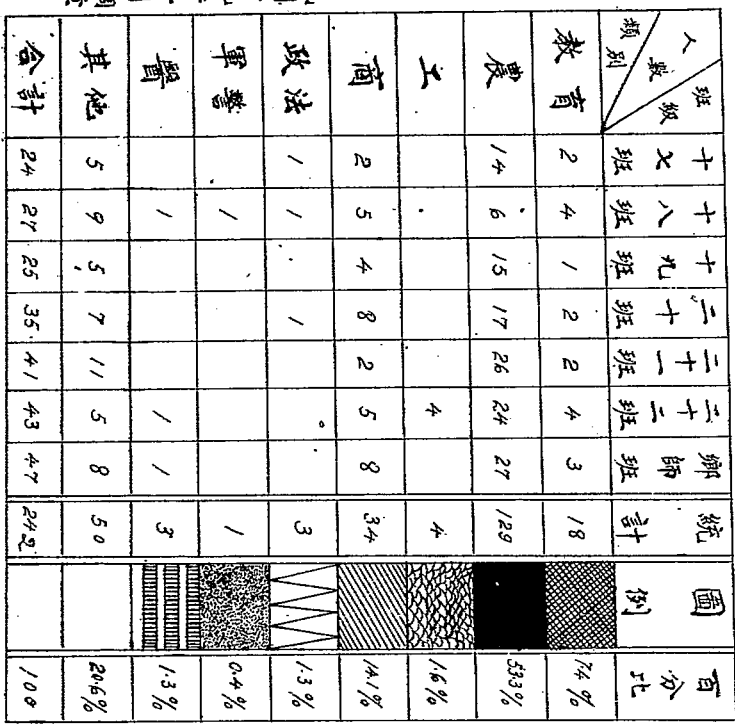 班級 人數 類別 十七班 十八班 十九班 二十班 二十一班 二十二班 鄉師班 統計 圖例 百分比
教育 2 4 1 2 2 4 3 18 7.4%
農 14 6 15 17 26 24 27 129 53.3%
工 4 4 1.6%
商 2 5 4 8 2 5 8 34 14.1%
政法 1 1 1 3 1.3%
軍警 1 1 0.4%
醫 1 1 1 3 1.3%
其他 5 9 5 7 11 5 8 50 20.6%
合計 24 27 25 35 41 43 47 242 100